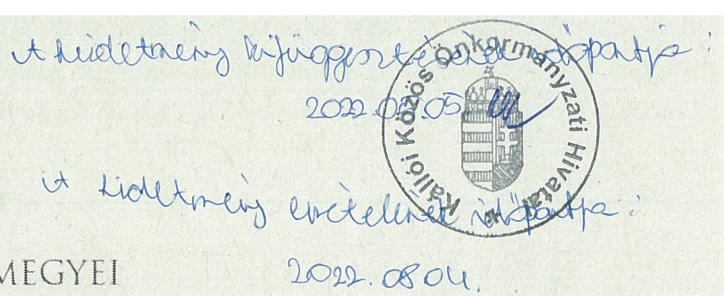 A hirdetmény kifüggesztésének időpontja:
2022.07.05.
Kállói Közös Önkormányzati Hivatal
A hirdetmény levételének időpontja:
MEGYEI
2022.08.04.